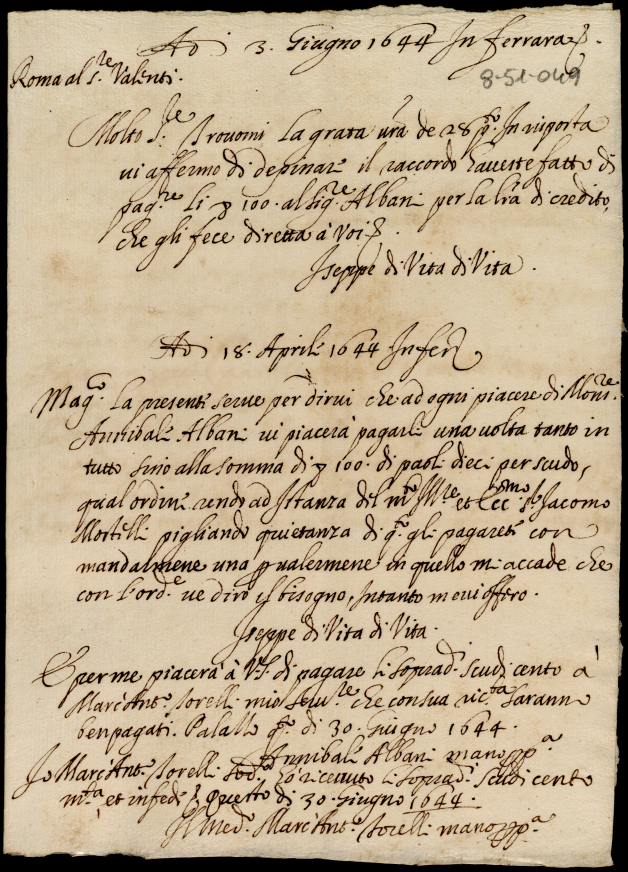 Adi 3. Giugno 1644 In ferrara
8-51-049
Roma al s.re Valenti.
Molto Ill.re Trovomi La grata vra de 28 In risposta
vi affermo di depinar il raccordo haveste fatto di
pag.re Li 100. al sig.re Albani per la lra di credito,
che gli fece diretta à Voi.
Iseppe di Vita di Vita.
Adi 18. April 1644 In fer
Mag.co La presente serve per dirvi che ad ogni piacere di Mons.re
Annibale Albani vi piacerà pagarli una volta tanto in
tutto sino alla somma di 100. di paoli dieci per scudo,
qual ordine rendo ad Istanza del m.to Ill.re et Ecc.mo s.r Jacomo
pigliando quietanza di q.to gli pagarete con
mandarmene una in quello mi accade che
con l'ord.e ve dirò il bisogno, Intanto me vi offero.
Iseppe di Vita di Vita.
E per me piacerà à V.S. di pagare li soprad. scudi cento à
Marc'Ant.o Sorelli mio che con sua ric.ta saranno
ben pagati. q.o di 30. Giugno 1644.
Annibale Albani mano pp.a
Io Marc'Ant.o Sorelli sod.o hò ricevuto li soprad. scudi cento
m.ta et in fede questo di 30. Giugno 1644.
Il med. Marc'Ant.o Sorelli mano pp.a